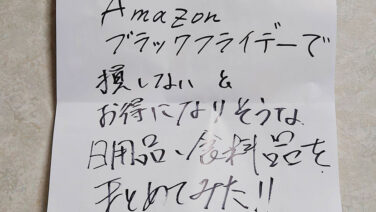 Amazon
ブラックフライデーで
損しない &
お得になりそうな
日用品、食料品を
まとめてみた!!